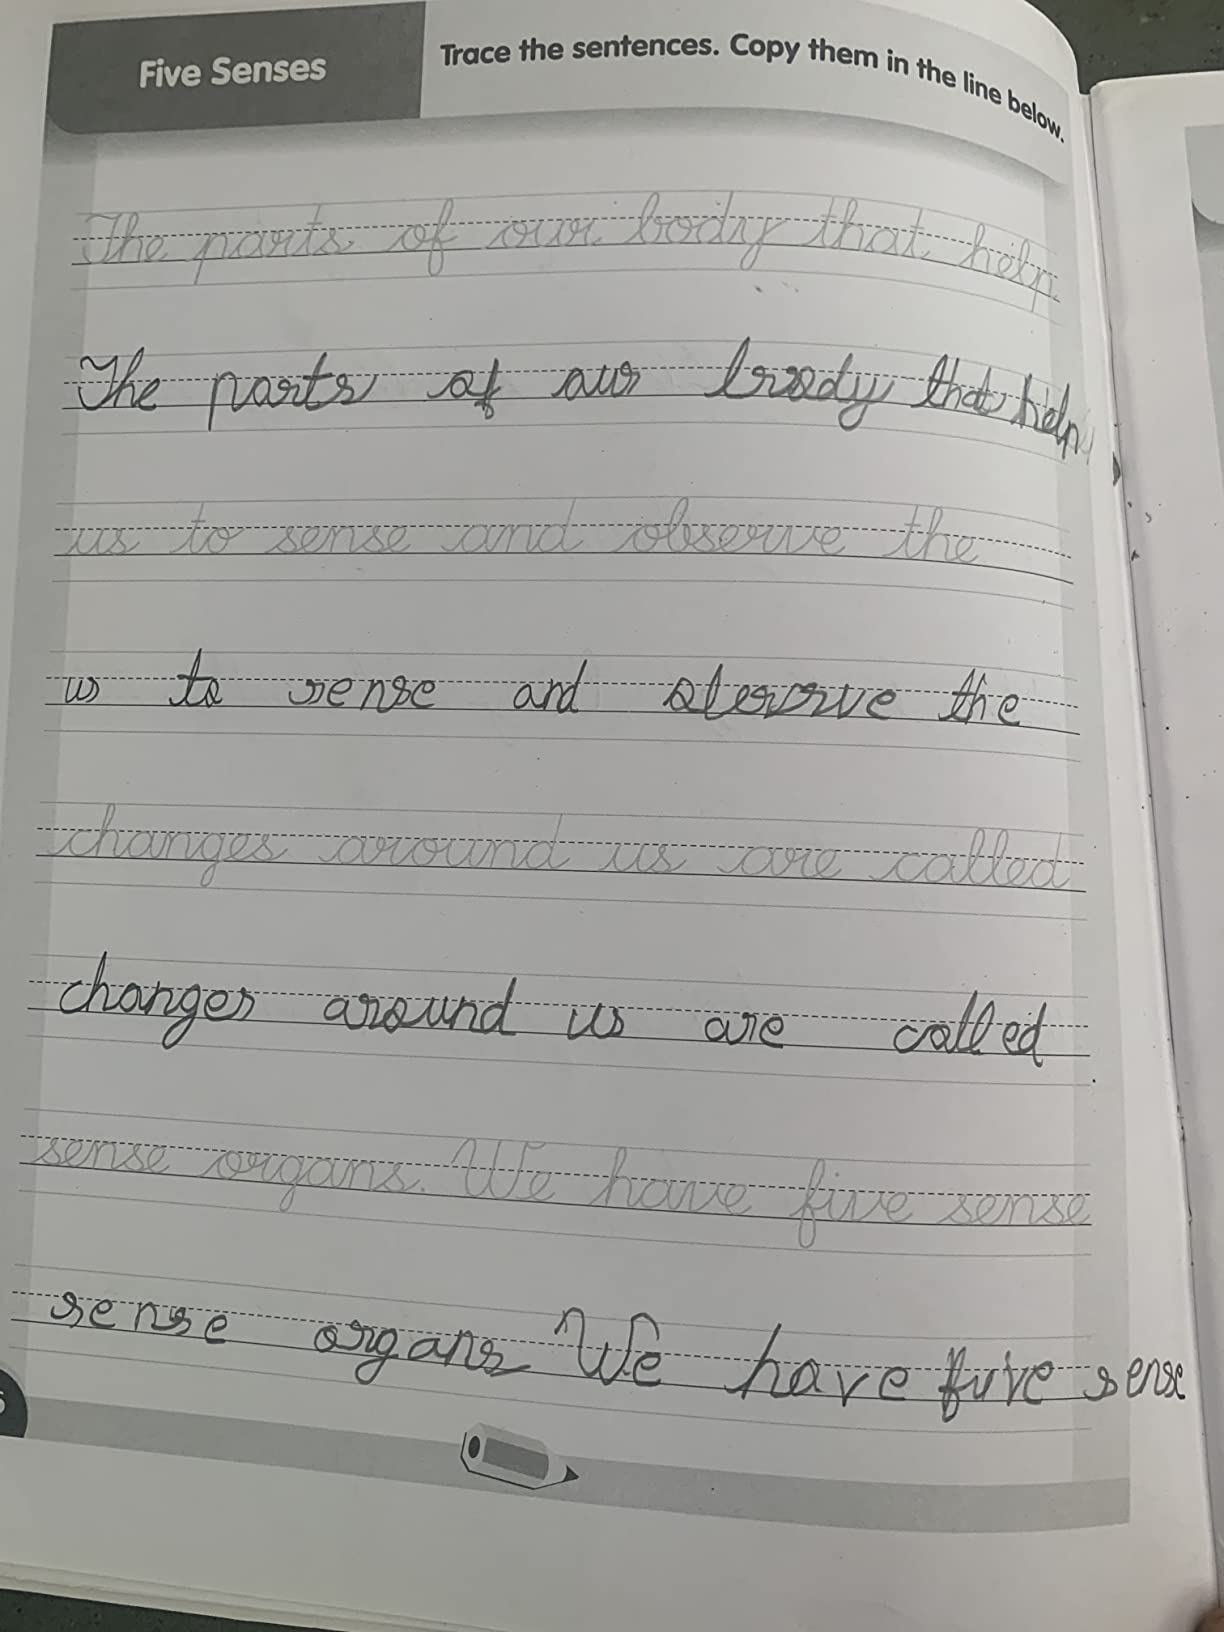 Five Senses
Trace the sentences. Copy them in the line below.
The parts of our body that help
The parts of our body that help
us to sense and observe the
us to sense and observe the
changes around us are called
changes around us are called
sense organs. We have five sense
sense organs We have five sense